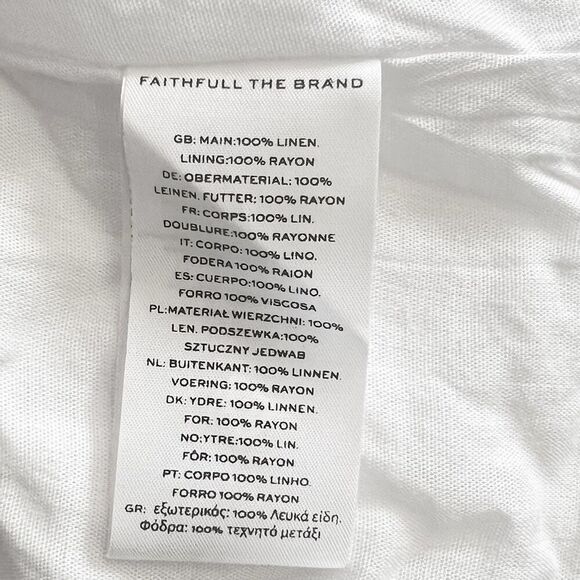 FAITHFULL THE BRAND
GB: MAIN:100% LINEN.
LINING:100% RAYON
DE: OBERMATERIAL: 100%
LEINEN. FUTTER: 100% RAYON
FR: CORPS:100% LIN.
DOUBLURE:100% RAYONNE
IT: CORPO: 100% LINO.
FODERA 100% RAION
ES: CUERPO:100% LINO.
FORRO 100% VISCOSA
PL:MATERIAŁ WIERZCHNI: 100%
LEN. PODSZEWKA:100%
SZTUCZNY JEDWAB
NL: BUITENKANT: 100% LINNEN.
VOERING: 100% RAYON
DK: YDRE: 100% LINNEN.
FOR: 100% RAYON
NO:YTRE:100% LIN.
FÔR: 100% RAYON
PT: CORPO 100% LINHO.
FORRO 100% RAYON
GR: εξωτερικός: 100% Λευκά είδη.
Φόδρα: 100% τεχνητό μετάξι